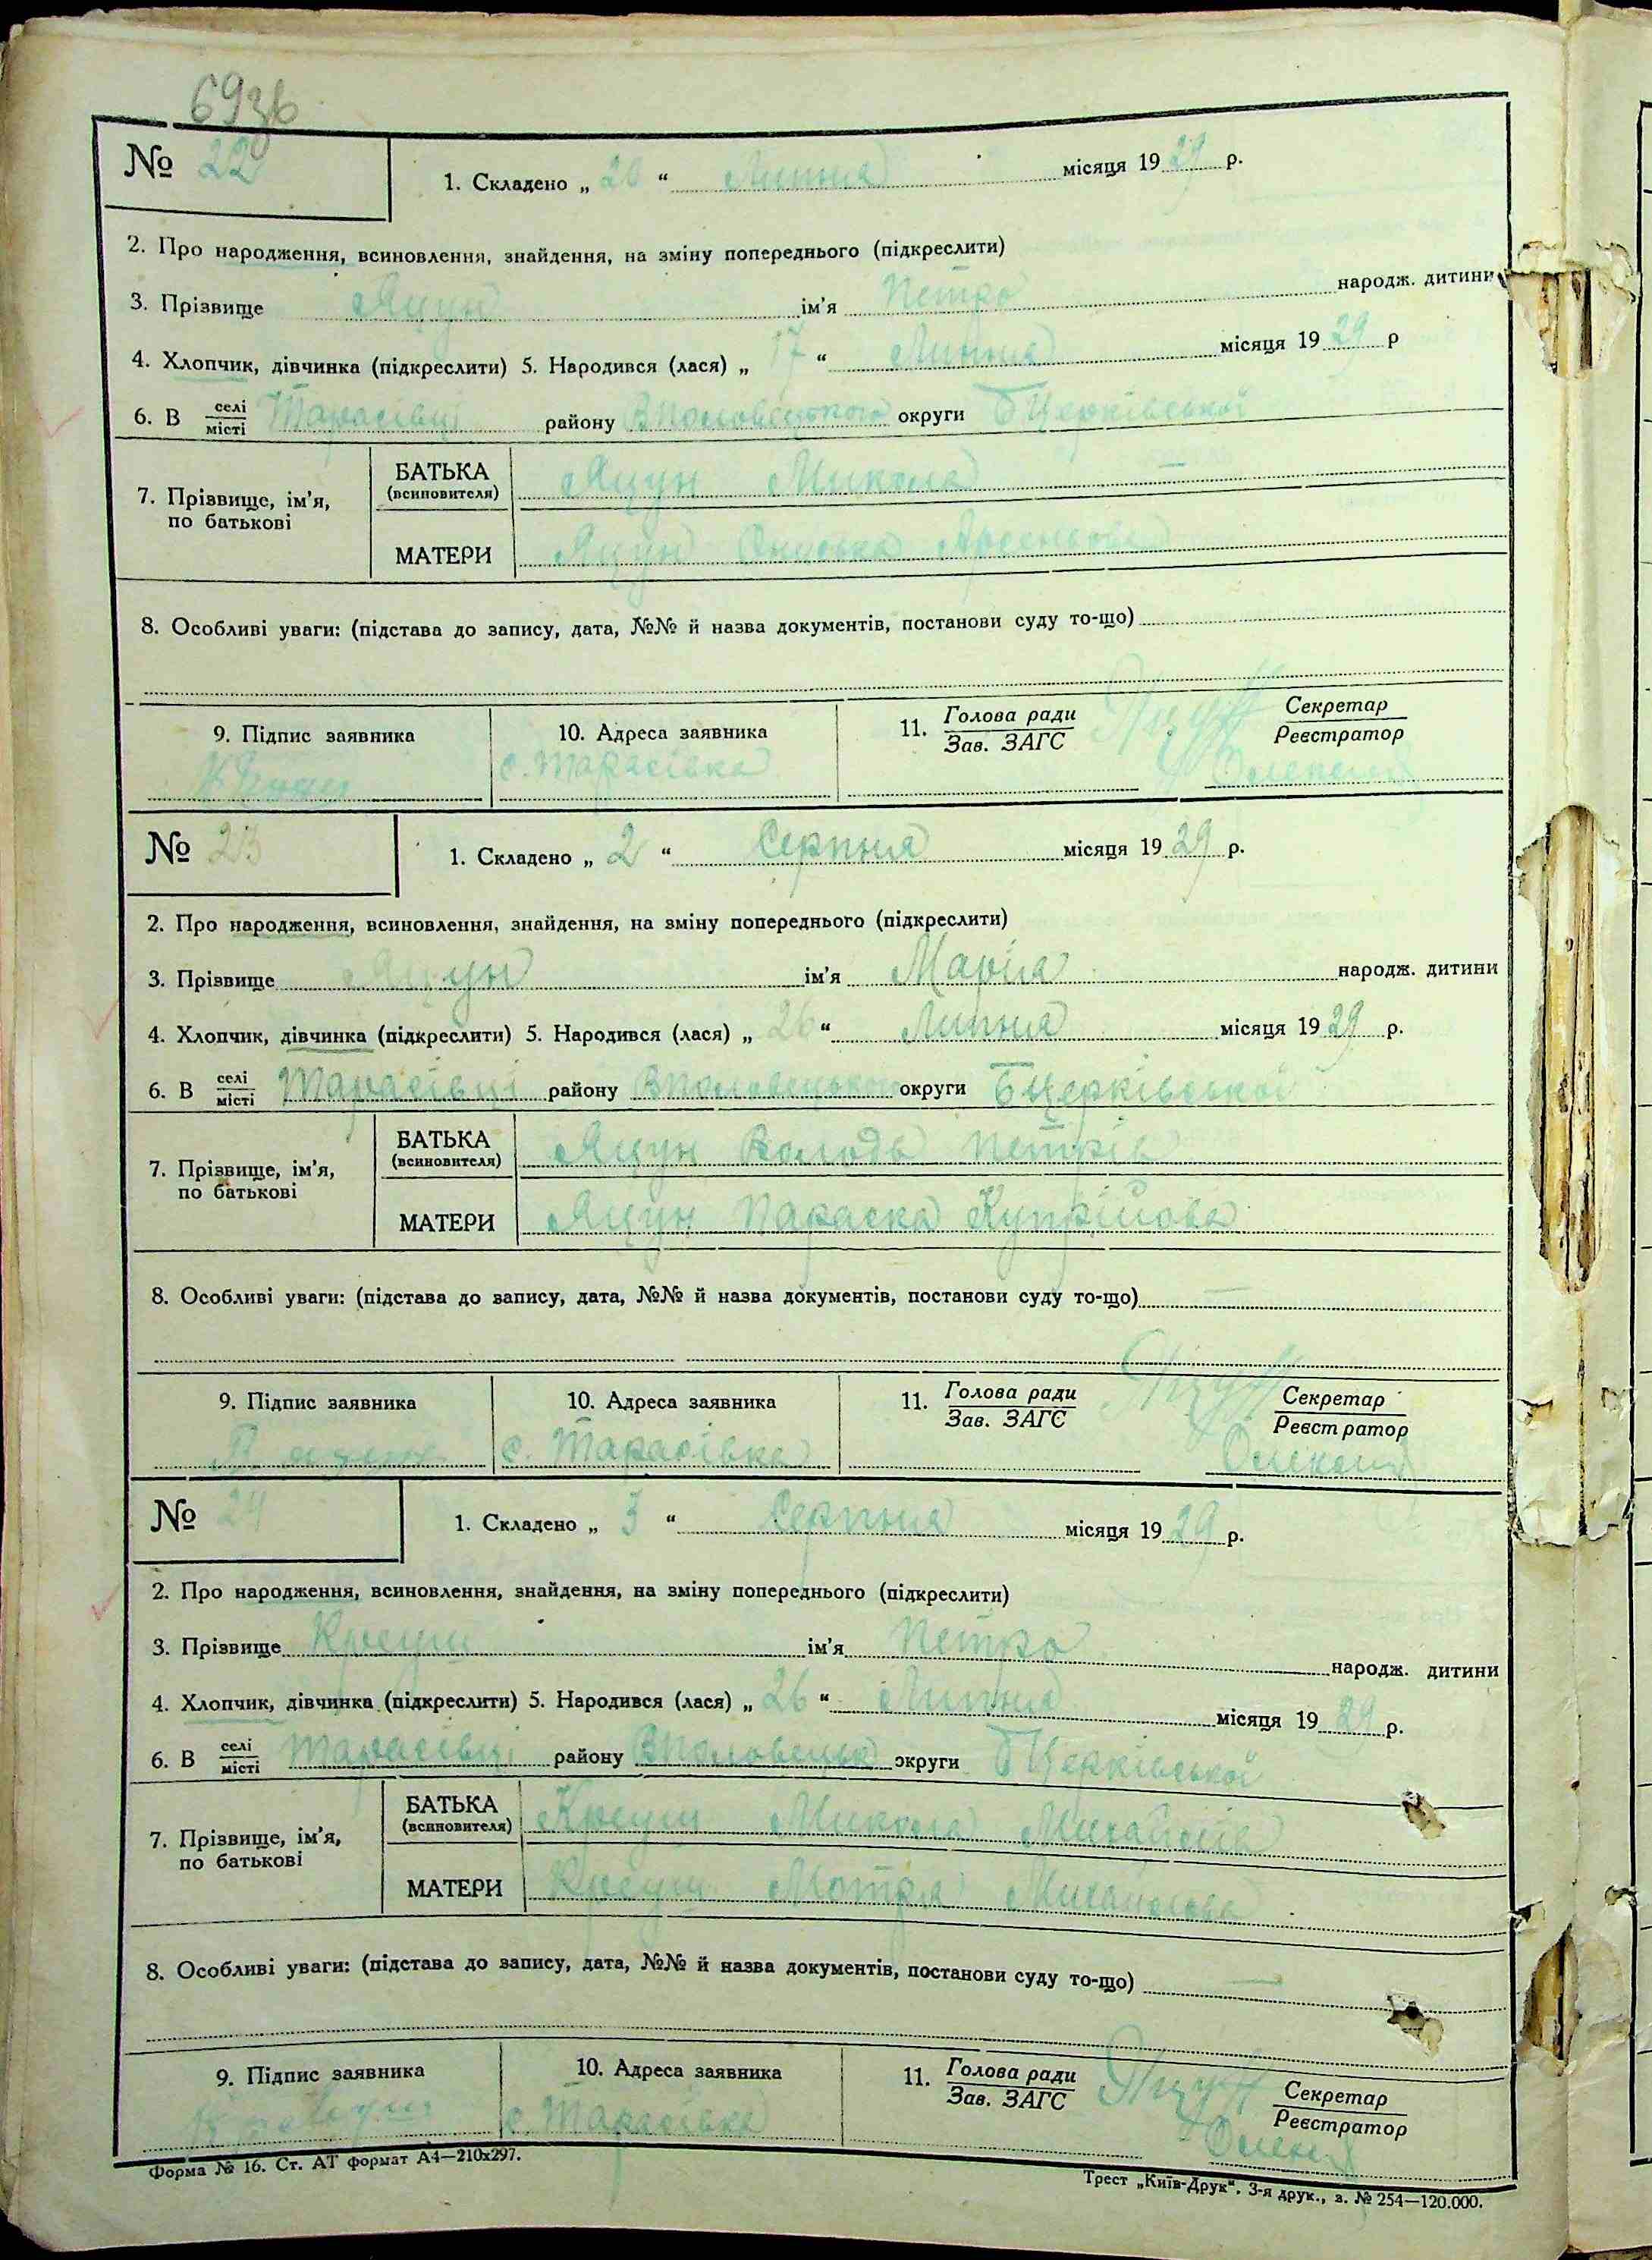 693в
№ 22
1. Складено „ 20 “ Липня місяця 19 29 р.
2. Про народження, всиновлення, знайдення, на зміну попереднього (підкреслити)
3. Прізвище Яцун ім’я Петро народж. дитини
4. Хлопчик, дівчинка (підкреслити) 5. Народився (лася) „ 17 “ Липня місяця 19 29 р
6. В селі/місті Тарасівці району ВПоловецького округи БЦерківської
7. Прізвище, ім’я, по батькові
БАТЬКА (всиновителя) Яцун Микола
МАТЕРИ Яцун Ониська
8. Особливі уваги: (підстава до запису, дата, №№ й назва документів, постанови суду то-що)
9. Підпис заявника
10. Адреса заявника с. Тарасівка
11. Голова ради/Зав. ЗАГС Яцун Секретар/Реєстратор
№ 23
1. Складено „ 2 “ Серпня місяця 19 29 р.
2. Про народження, всиновлення, знайдення, на зміну попереднього (підкреслити)
3. Прізвище Яцун ім’я Марія народж. дитини
4. Хлопчик, дівчинка (підкреслити) 5. Народився (лася) „ 26 “ Липня місяця 19 29 р.
6. В селі/місті Тарасівці району ВПоловецького округи БЦерківської
7. Прізвище, ім’я, по батькові
БАТЬКА (всиновителя) Яцун Володь Петрів
МАТЕРИ Яцун Параска Купрійова
8. Особливі уваги: (підстава до запису, дата, №№ й назва документів, постанови суду то-що) —
9. Підпис заявника
10. Адреса заявника с. Тарасівка
11. Голова ради/Зав. ЗАГС Яцун Секретар/Реєстратор
№ 24
1. Складено „ 3 “ Серпня місяця 19 29 р.
2. Про народження, всиновлення, знайдення, на зміну попереднього (підкреслити)
3. Прізвище Креуш ім’я Петро народж. дитини
4. Хлопчик, дівчинка (підкреслити) 5. Народився (лася) „ 26 “ Липня місяця 19 29 р.
6. В селі/місті Тарасівці району ВПоловецьк округи БЦерківської
7. Прізвище, ім’я, по батькові
БАТЬКА (всиновителя) Креуш Микола Михайлів
МАТЕРИ Креуш Мотря Михайлова
8. Особливі уваги: (підстава до запису, дата, №№ й назва документів, постанови суду то-що) —
9. Підпис заявника
10. Адреса заявника с. Тарасівка
11. Голова ради/Зав. ЗАГС Яцун Секретар/Реєстратор
Форма № 16. Ст. АТ формат А4—210x297.
Трест „Київ-Друк“. 3-я друк., з. № 254—120.000.